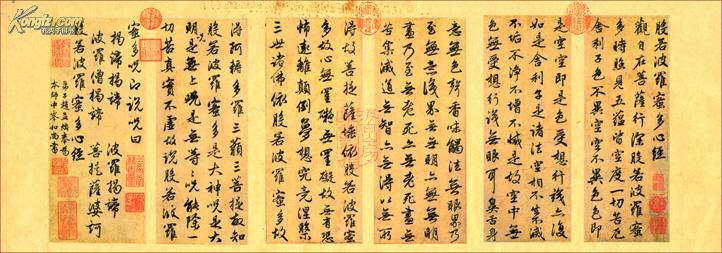 般若波羅蜜多心經
觀自在菩薩行深般若波羅蜜
多時照見五蘊皆空度一切苦厄
舍利子色不異空空不異色色即
是空空即是色受想行識亦復
如是舍利子是諸法空相不生不滅
不垢不淨不增不減是故空中無
色無受想行識無眼耳鼻舌身
意無色聲香味觸法無眼界乃
至無意識界無無明亦無無明
盡乃至無老死亦無老死盡無
苦集滅道無智亦無得以無所
得故菩提薩埵依般若波羅蜜
多故心無罣礙無罣礙故無有恐
怖遠離顛倒夢想究竟涅槃
三世諸佛依般若波羅蜜多故
得阿耨多羅三藐三菩提故知
般若波羅蜜多是大神呪是大
明呪是無上呪是無等等呪能除一
切苦真實不虛故說般若波羅
蜜多呪即說呪曰
揭諦揭諦 波羅揭諦
波羅僧揭諦 菩提薩婆訶
般若波羅蜜多心經
弟子趙孟頫奉為
本師中峯和尚書